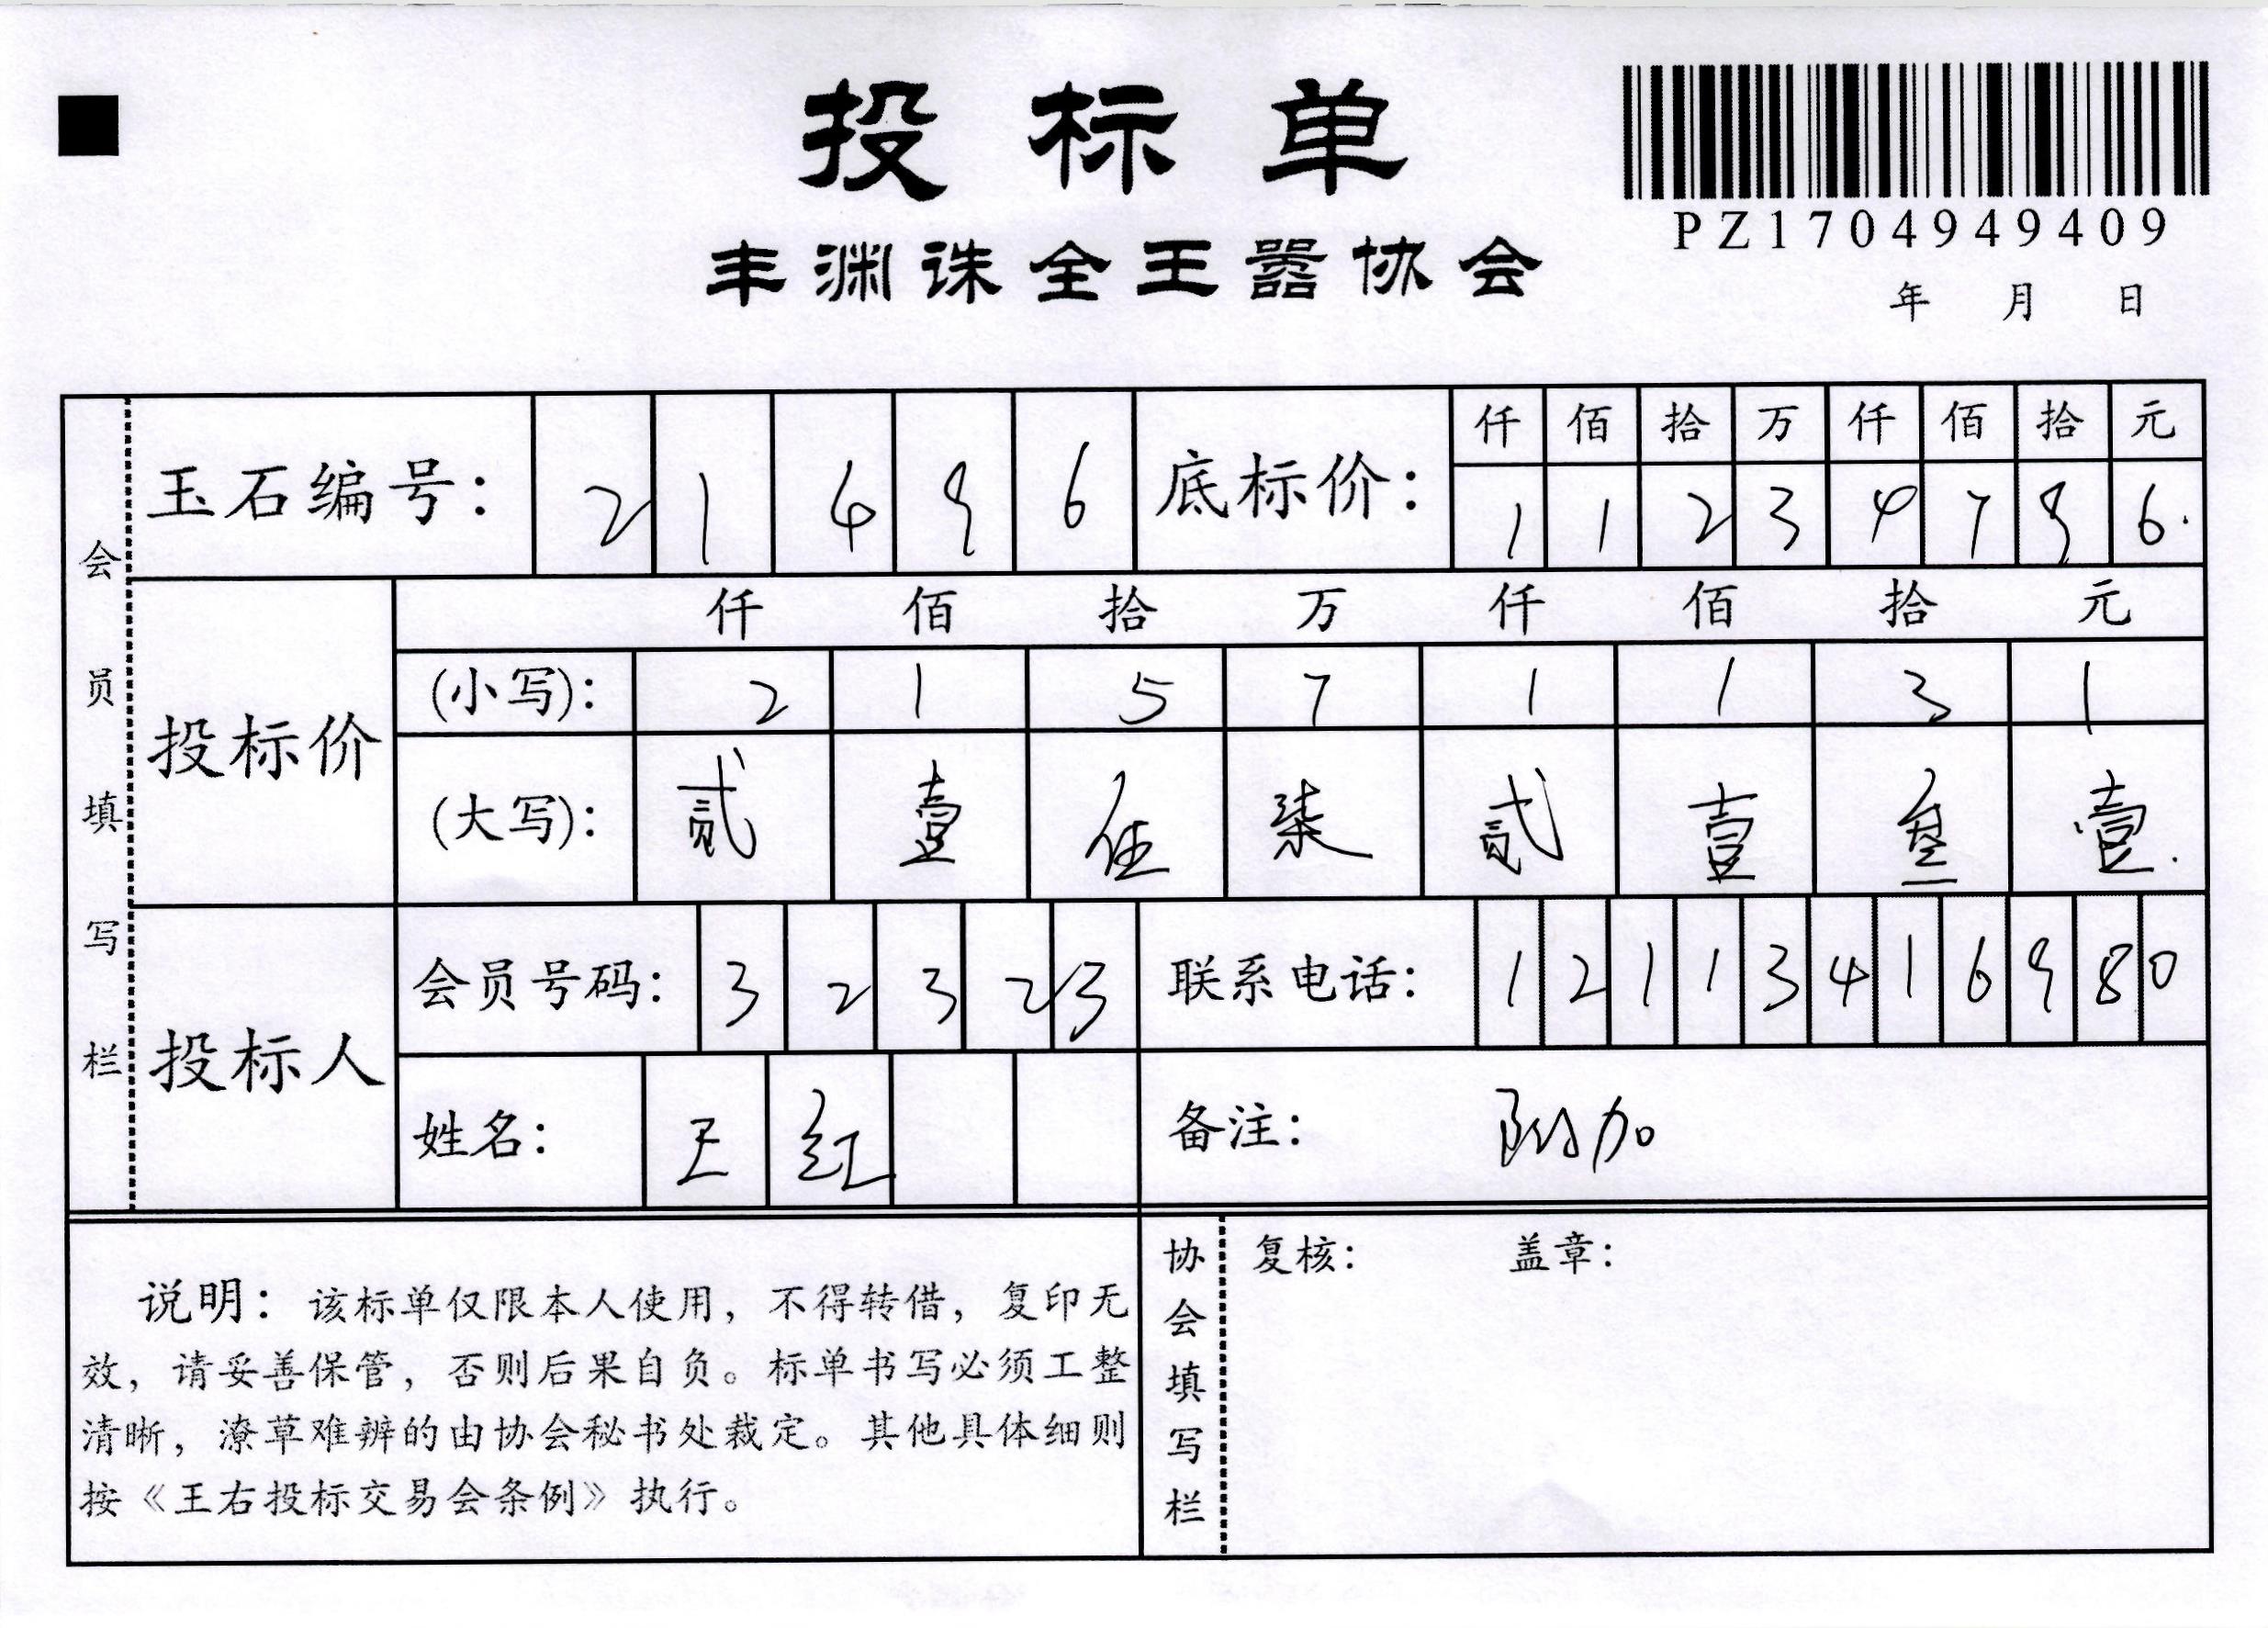 投标单
PZ1704949409
丰渊诛全王嚣协会
年 月 日
会员填写栏
玉石编号: 2 1 4 9 6
底标价: 仟 佰 拾 万 仟 佰 拾 元
1 1 2 3 4 7 9 6.
投标价
仟 佰 拾 万 仟 佰 拾 元
(小写): 2 1 5 7 1 1 3 1
(大写): 贰 壹 伍 柒 贰 壹 叁 壹.
投标人
会员号码: 3 2 3 2 3
联系电话: 1 2 1 1 3 4 1 6 9 8 0
姓名: 王 红
备注: 附加
说明: 该标单仅限本人使用, 不得转借, 复印无
效, 请妥善保管, 否则后果自负。标单书写必须工整
清晰, 潦草难辨的由协会秘书处裁定。其他具体细则
按《王右投标交易会条例》执行。
协会填写栏
复核: 盖章: